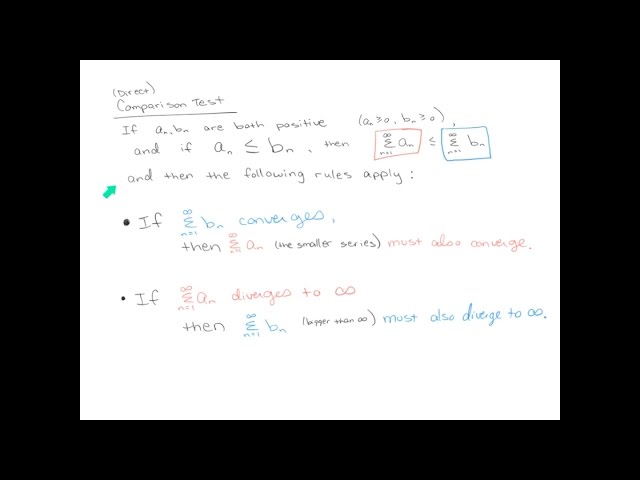 (Direct)
Comparison Test
If aₙ, bₙ are both positive (aₙ ≥ 0, bₙ ≥ 0),
and if aₙ ≤ bₙ, then ∞ Σ n=1 aₙ ≤ ∞ Σ n=1 bₙ
and then the following rules apply:
• If ∞ Σ n=1 bₙ converges,
then ∞ Σ n=1 aₙ (the smaller series) must also converge.
• If ∞ Σ n=1 aₙ diverges to ∞
then ∞ Σ n=1 bₙ (bigger than ∞) must also diverge to ∞.